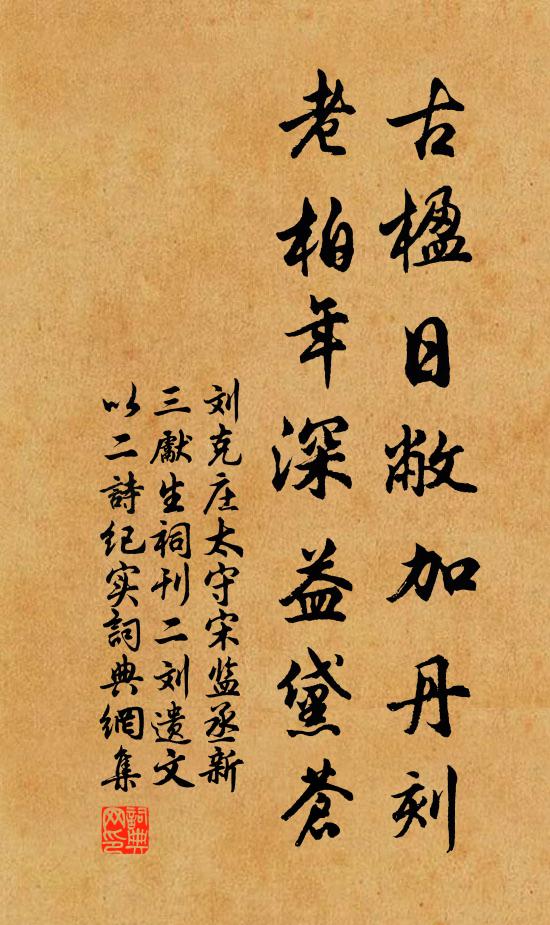 古楹日敝加丹刻
老柏年深益黛蒼
刘克庄太守宋监丞新
三獻生祠刊二刘遗文
以二詩纪实詞典網集
詞典網印